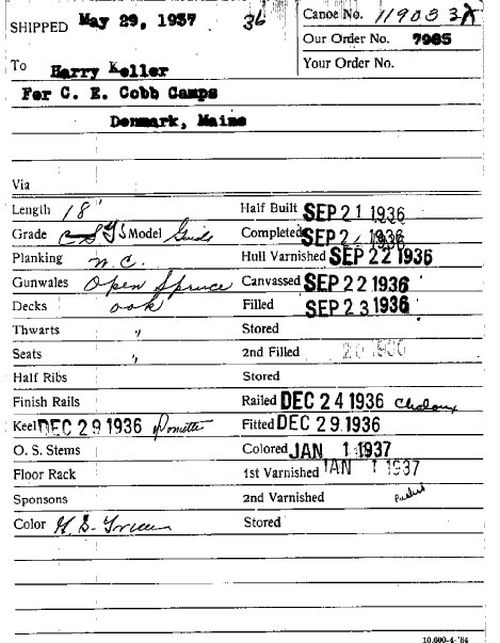 SHIPPED May 29, 1937 36 Canoe No. 119033
Our Order No. 7985
To Harry Keller Your Order No.
For C. E. Cobb Camps
Denmark, Maine
Via
Length 18" Half Built SEP 21 1936
Grade Model Guide Completed SEP 1936
Planking W.C. Hull Varnished SEP 22 1936
Gunwales Open Spruce Canvassed SEP 22 1936
Decks oak Filled SEP 23 1936
Thwarts " Stored
Seats " 2nd Filled
Half Ribs Stored
Finish Rails Railed DEC 24 1936
Keel DEC 29 1936 Fitted DEC 29 1936
O. S. Stems Colored JAN 1 1937
Floor Rack 1st Varnished JAN 1 1937
Sponsons 2nd Varnished
Color Green Stored
10,600-4-'34